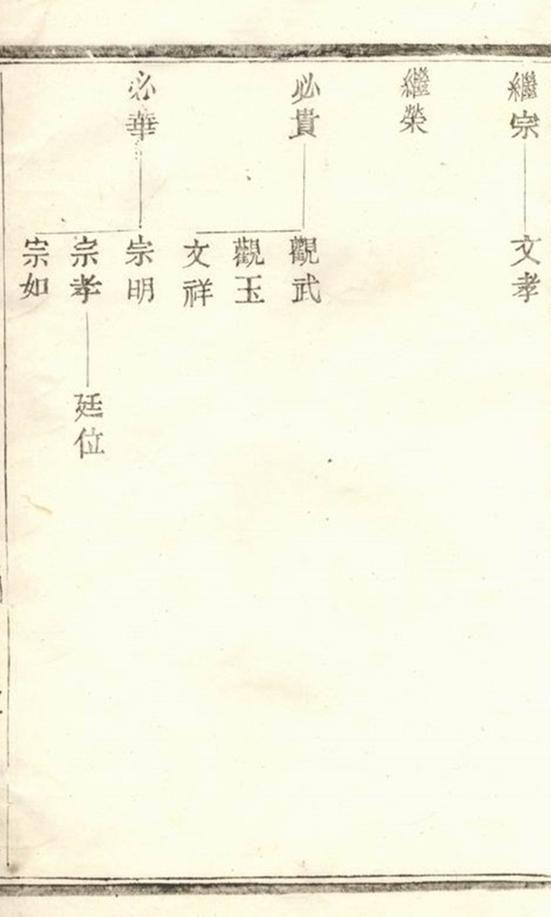 繼宗
文孝
繼榮
必貴
觀武
觀玉
文祥
必華
宗明
宗孝
廷位
宗如